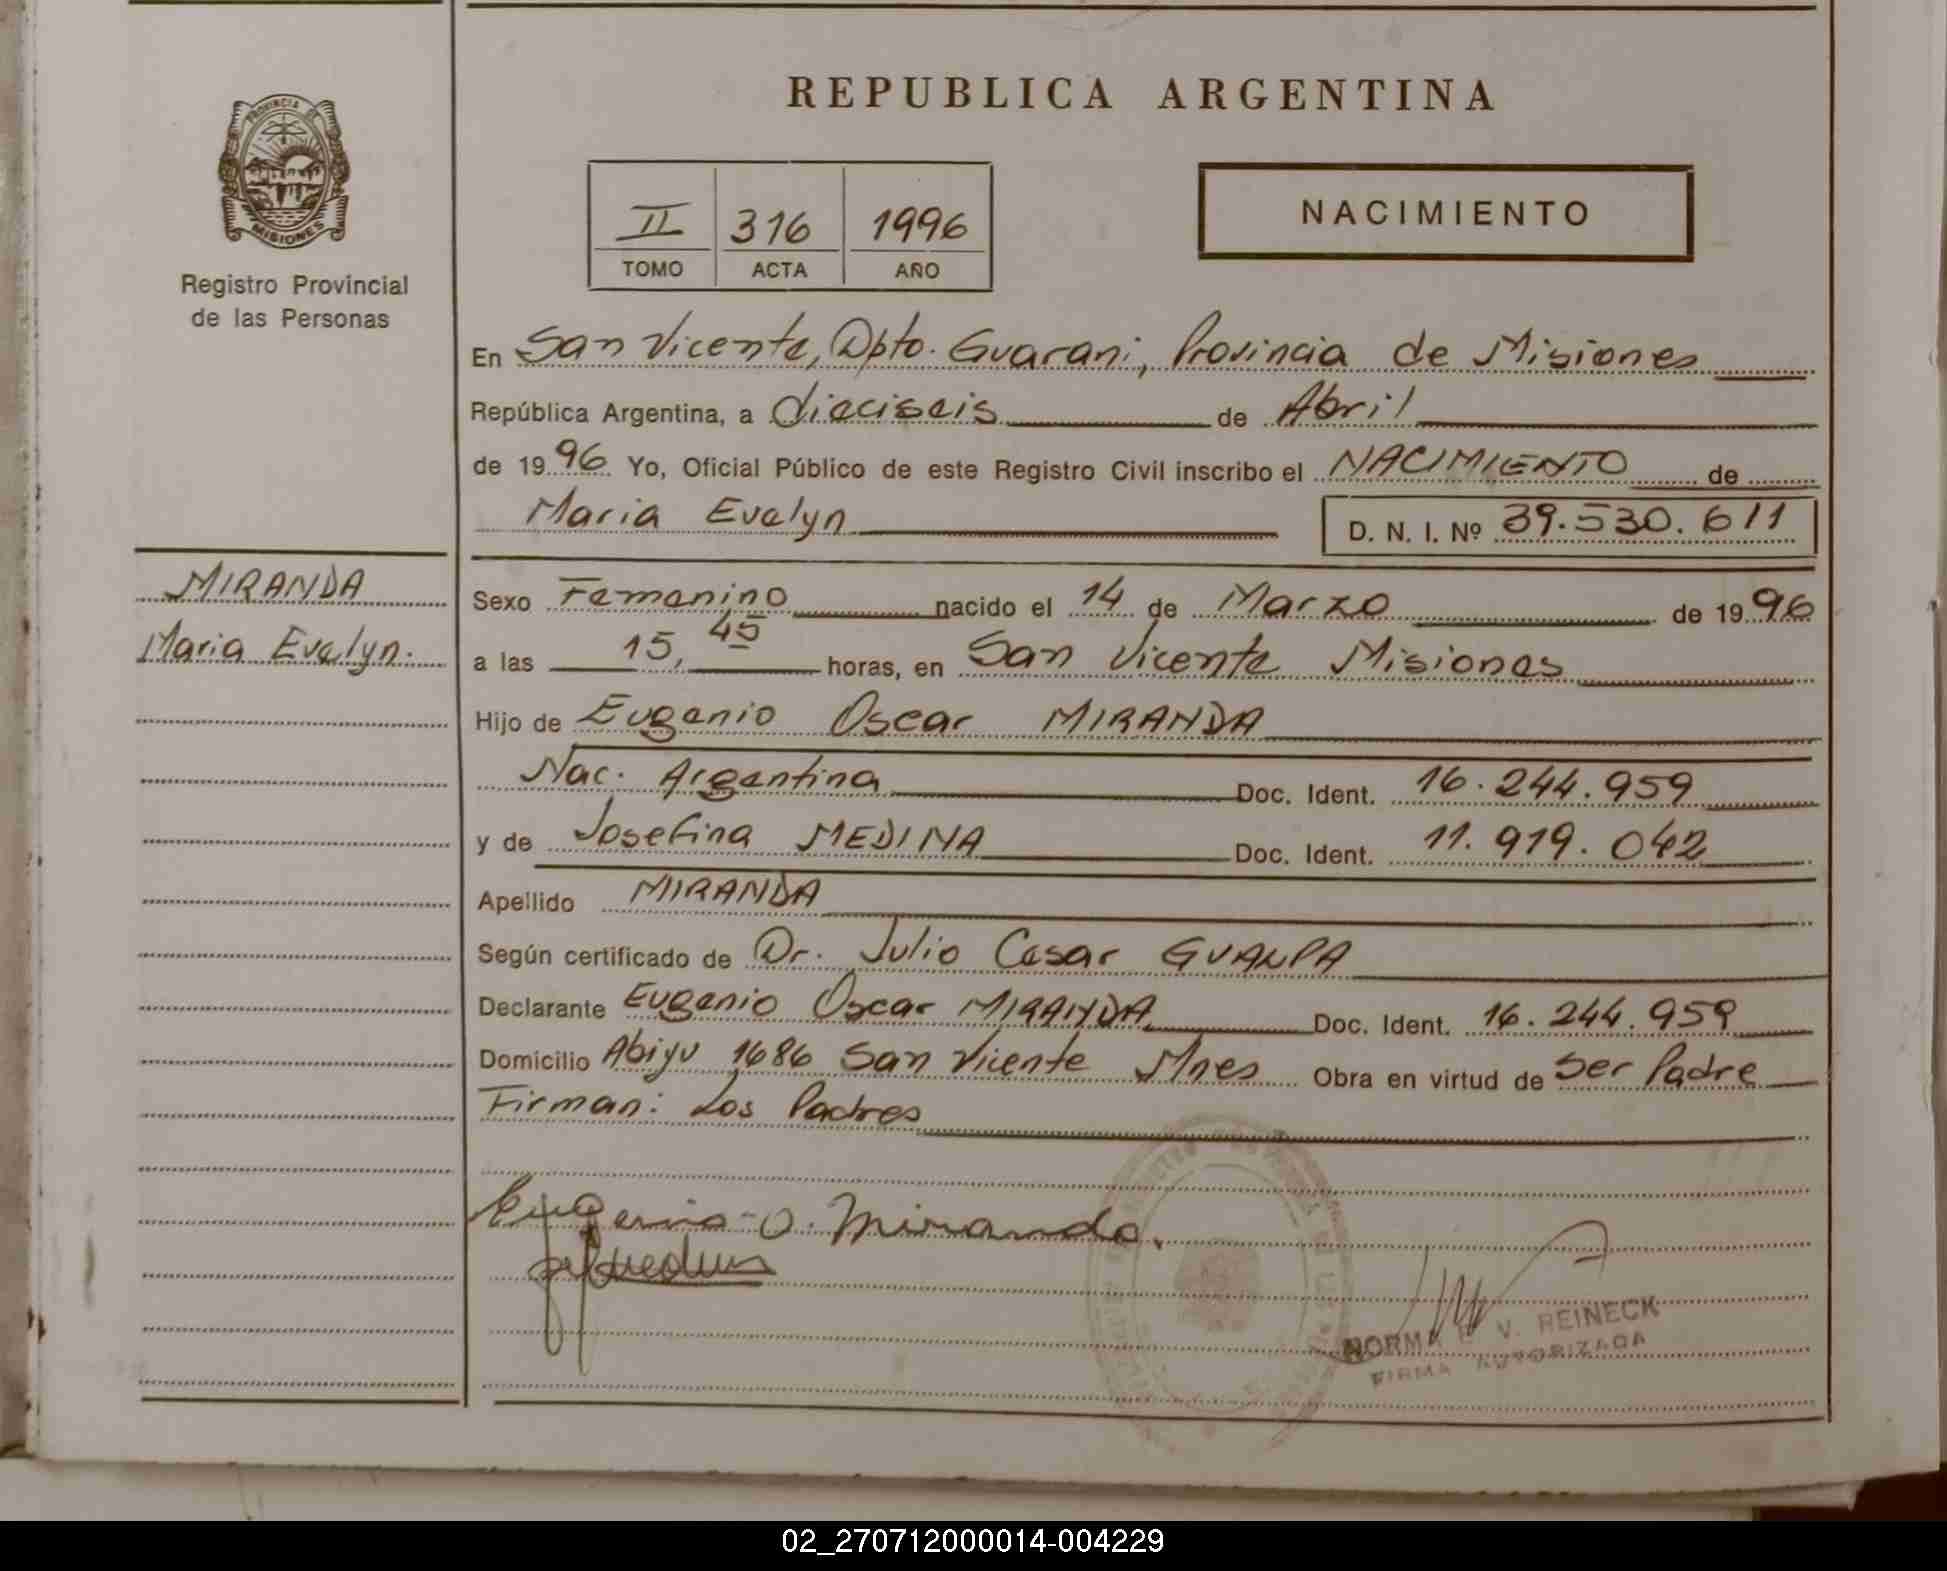 REPUBLICA ARGENTINA
PROVINCIA DE
MISIONES
Registro Provincial
de las Personas
II 316 1996
TOMO ACTA AÑO
NACIMIENTO
En San Vicente, Dpto. Guarani, Provincia de Misiones
República Argentina, a dieciseis de Abril
de 1996 Yo, Oficial Público de este Registro Civil inscribo el NACIMIENTO de
Maria Evelyn D. N. I. Nº 39.530.611
MIRANDA
Maria Evelyn.
Sexo Femenino nacido el 14 de Marzo de 1996
a las 15,45 horas, en San Vicente Misiones
Hijo de Eugenio Oscar MIRANDA
Nac. Argentina Doc. Ident. 16.244.959
y de Josefina MEDINA Doc. Ident. 11.919.042
Apellido MIRANDA
Según certificado de Dr. Julio Cesar GUALPA
Declarante Eugenio Oscar MIRANDA Doc. Ident. 16.244.959
Domicilio Abiyu 1686 San Vicente Mnes Obra en virtud de Ser Padre
Firman: Los Padres
Eugenio O. Miranda.
NORMA V. REINECK
FIRMA AUTORIZADA
02_270712000014-004229